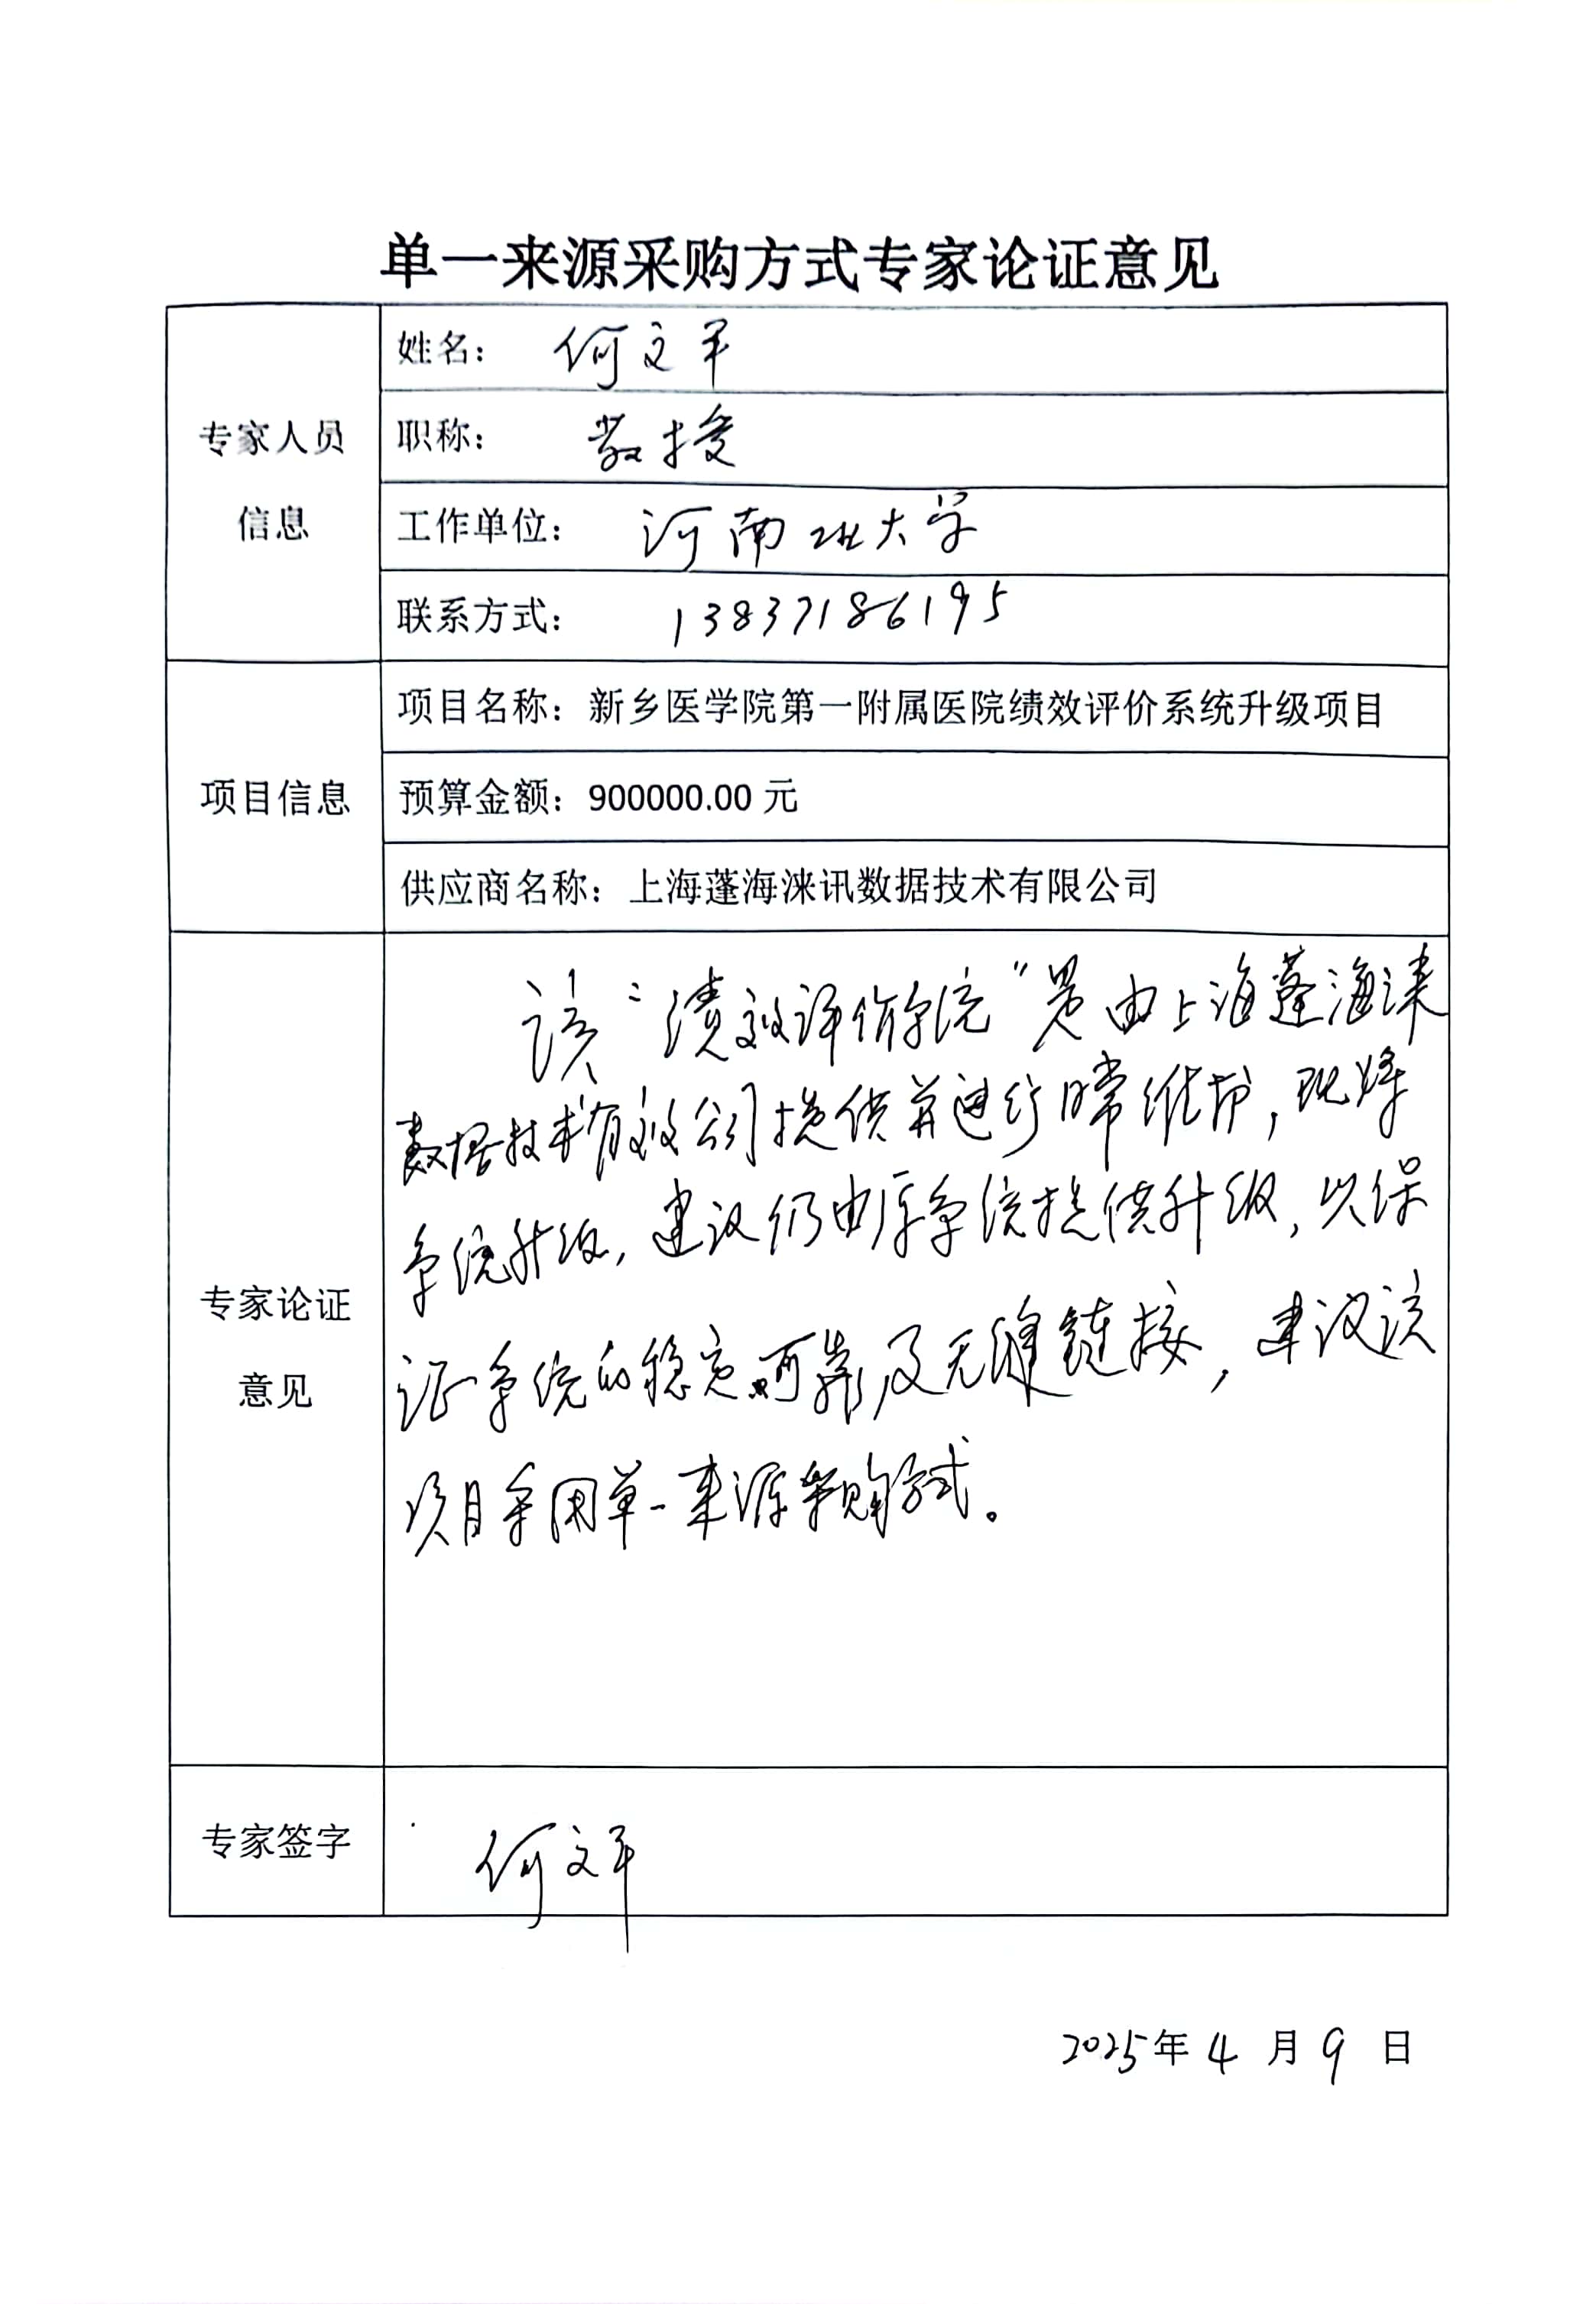 单一来源采购方式专家论证意见
专家人员
信息
姓名： 何文平
职称： 教授
工作单位： 河南工业大学
联系方式： 13837186195
项目信息
项目名称：新乡医学院第一附属医院绩效评价系统升级项目
预算金额：900000.00 元
供应商名称：上海蓬海涞讯数据技术有限公司
专家论证
意见
该“绩效评价系统”是由上海蓬海涞
数据技术有限公司提供并进行日常维护，现将
系统升级，建议仍由原系统提供升级，以保
证系统的稳定可靠及无缝链接，建议该
项目采用单一来源采购方式。
专家签字
何文平
2025年4月9日